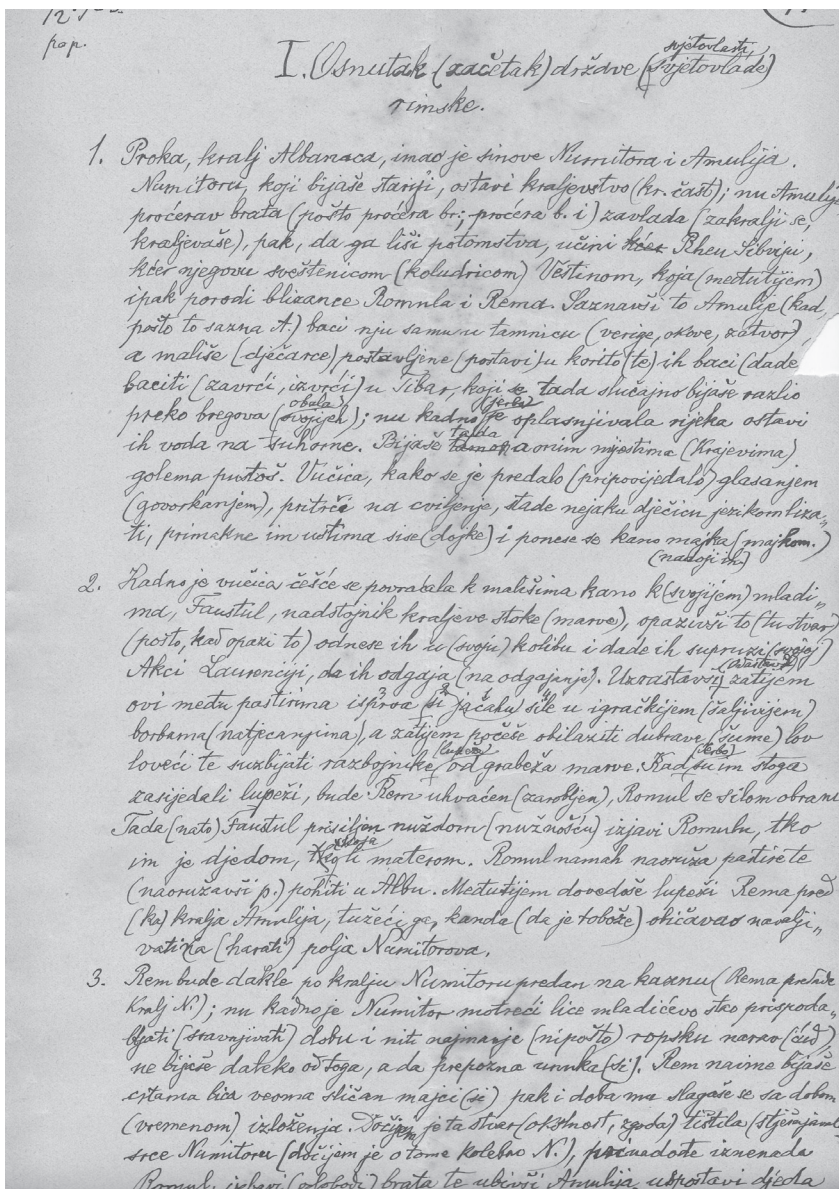 pop.
svjetovlasti
I. Osnutak (začetak) države (svjetovlade)
rimske.
1. Proka, kralj Albanaca, imao je sinove Numitora i Amulija.
Numitoru, koji bijaše stariji, ostavi kraljevstvo (kr. čast); nu Amulij
proćerav brata (pošto proćera br.; proćera b. i) zavlada (zakralji se,
kraljevaše), pak, da ga liši potomstva, učini kćer Rheu Silviju,
kćer njegovu sveštenicom (koludricom) Vestinom, koja (međutijem)
ipak porodi blizance Romula i Rema. Saznavši to Amulije (kad,
pošto to sazna A.) baci nju samu u tamnicu (verige, okove, zatvor),
a mališe (dječarce) postavljene (postavi) u korito (te) ih baci (dade
baciti (zavrći, izvrći) u Tibar, koji se tada slučajno bijaše razlio
obala (jerbo)
preko bregova (svojijeh); nu kadno je oplasnjivala rijeka ostavi
tada
ih voda na suhome. Bijaše u onim mjestima (krajevima)
golema pustoš. Vučica, kako se je predalo (pripovijedalo) glasanjem
(govorkanjem), pritrči na cviljenje, stade nejaku dječicu jezikom liza-
ti, primakne im ustima sise (dojke) i ponese se kano majka (majkom.)
(nadoji ih)
2. Kadno je vučica češće se povraćala k mališima kano k (svojijem) mladi-
ma, Faustul, nadstojnik kraljeve stoke (marve), opazivši to (tu stvar)
(pošto, kad opazi to) odnese ih u (svoju) kolibu i dade ih supruzi (svojoj)
Akci Laurenciji, da ih odgaja (na odgajanje). Uzrastavši zatijem
ovi među pastirima isprva si jačahu sile u igračkijem (šaljivijem)
borbama (natjecanjima), a zatijem počeše obilaziti dubrave (šume) lov
(lupeže) (Jerbo)
loveći te suzbijati razbojnike od grabeža marve. Kad su im stoga
zasijedali lupeži, bude Rem uhvaćen (zarobljen), Romul se silom obrani
Tada (nato) Faustul prisiljen nuždom (nužnošću) izjavi Romulu, tko
im je djedom, materom. Romul namah naoruža pastire te
(naoružavši p.) pohiti u Albu. Međutijem dovedoše lupeži Rema pred
(ka) kralja Amulija, tužeći ga, kanda (da je tobože) običavao navalji-
vati na (harati) polja Numitorova.
3. Rem bude dakle po kralju Numitoru predan na kaznu (Rema predade
Kralj N.); nu kadno je Numitor motreći lice mladićevo stao prispoda-
bljati (sravnjivati) dobu i niti najmanje (nipošto) ropsku narav (ćud),
ne bješe daleko od toga, a da prepozna unuka (si). Rem naime bijaše
crtama lica veoma sličan majci (si) pak i doba mu slagaše se sa dobom
(vremenom) izloženja. Dočijem je ta stvar (okolnost, zgoda) tištila
srce Numitoru (dočijem je o tome kolebao N.), pridođe iznenada
Romul, izbavi (oslobodi) brata te ubivši Amulija uspostavi djeda